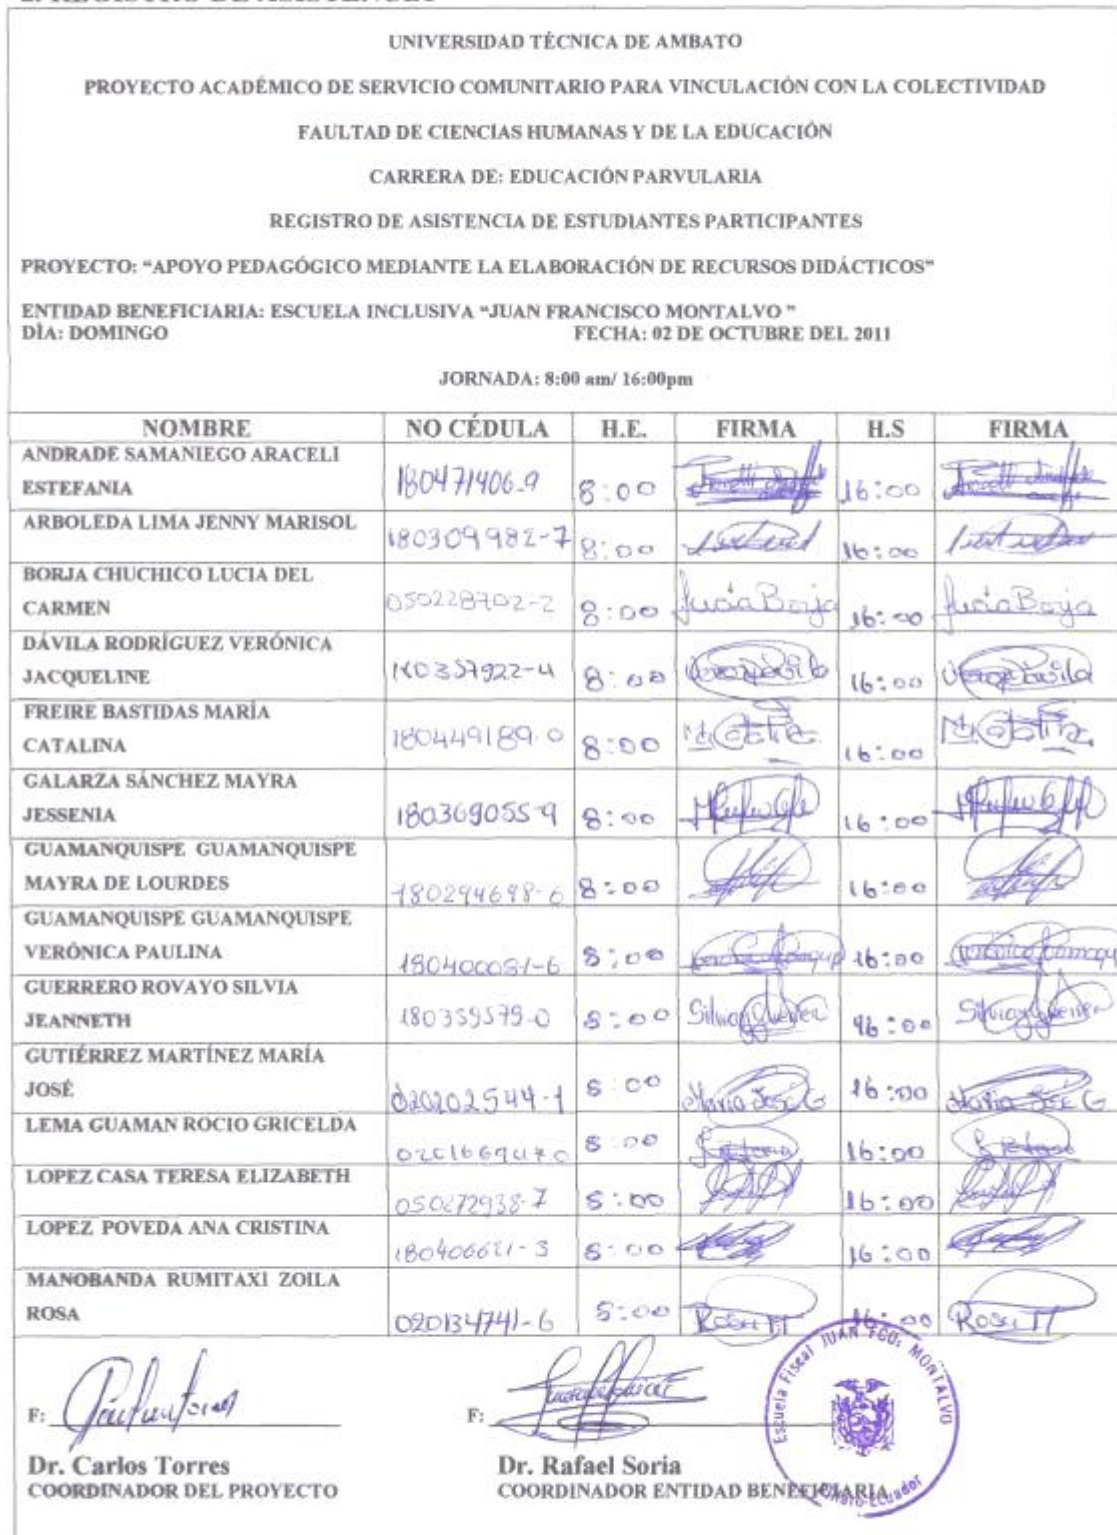 UNIVERSIDAD TÉCNICA DE AMBATO
PROYECTO ACADÉMICO DE SERVICIO COMUNITARIO PARA VINCULACIÓN CON LA COLECTIVIDAD
FAULTAD DE CIENCIAS HUMANAS Y DE LA EDUCACIÓN
CARRERA DE: EDUCACIÓN PARVULARIA
REGISTRO DE ASISTENCIA DE ESTUDIANTES PARTICIPANTES
PROYECTO: “APOYO PEDAGÓGICO MEDIANTE LA ELABORACIÓN DE RECURSOS DIDÁCTICOS”
ENTIDAD BENEFICIARIA: ESCUELA INCLUSIVA “JUAN FRANCISCO MONTALVO ”
DÌA: DOMINGO FECHA: 02 DE OCTUBRE DEL 2011
JORNADA: 8:00 am/ 16:00pm
NOMBRE NO CÉDULA H.E. FIRMA H.S FIRMA
ANDRADE SAMANIEGO ARACELI
ESTEFANIA 180471406-9 8:00 16:00
ARBOLEDA LIMA JENNY MARISOL
180309982-7 8:00 16:00
BORJA CHUCHICO LUCIA DEL
CARMEN 050228702-2 8:00 Lucía Borja 16:00 Lucía Borja
DÁVILA RODRÍGUEZ VERÓNICA
JACQUELINE 180357922-4 8:00 16:00
FREIRE BASTIDAS MARÍA
CATALINA 180449189-0 8:00 16:00
GALARZA SÁNCHEZ MAYRA
JESSENIA 180369055-9 8:00 16:00
GUAMANQUISPE GUAMANQUISPE
MAYRA DE LOURDES 180294698-6 8:00 16:00
GUAMANQUISPE GUAMANQUISPE
VERÓNICA PAULINA 8:00 16:00
GUERRERO ROVAYO SILVIA
JEANNETH 180359579-0 8:00 16:00
GUTIÉRREZ MARTÍNEZ MARÍA
JOSÉ 020202544-1 8:00 María José G 16:00 María José G
LEMA GUAMAN ROCIO GRICELDA
8:00 16:00
LOPEZ CASA TERESA ELIZABETH
050272938-7 8:00 16:00
LOPEZ POVEDA ANA CRISTINA
8:00 16:00
MANOBANDA RUMITAXI ZOILA
ROSA 020134741-6 8:00 Rosa M 16:00 Rosa M
Escuela Fiscal JUAN FCO. MONTALVO
F: F:
Dr. Carlos Torres Dr. Rafael Soria
COORDINADOR DEL PROYECTO COORDINADOR ENTIDAD BENEFICIARIA
Ambato-Ecuador